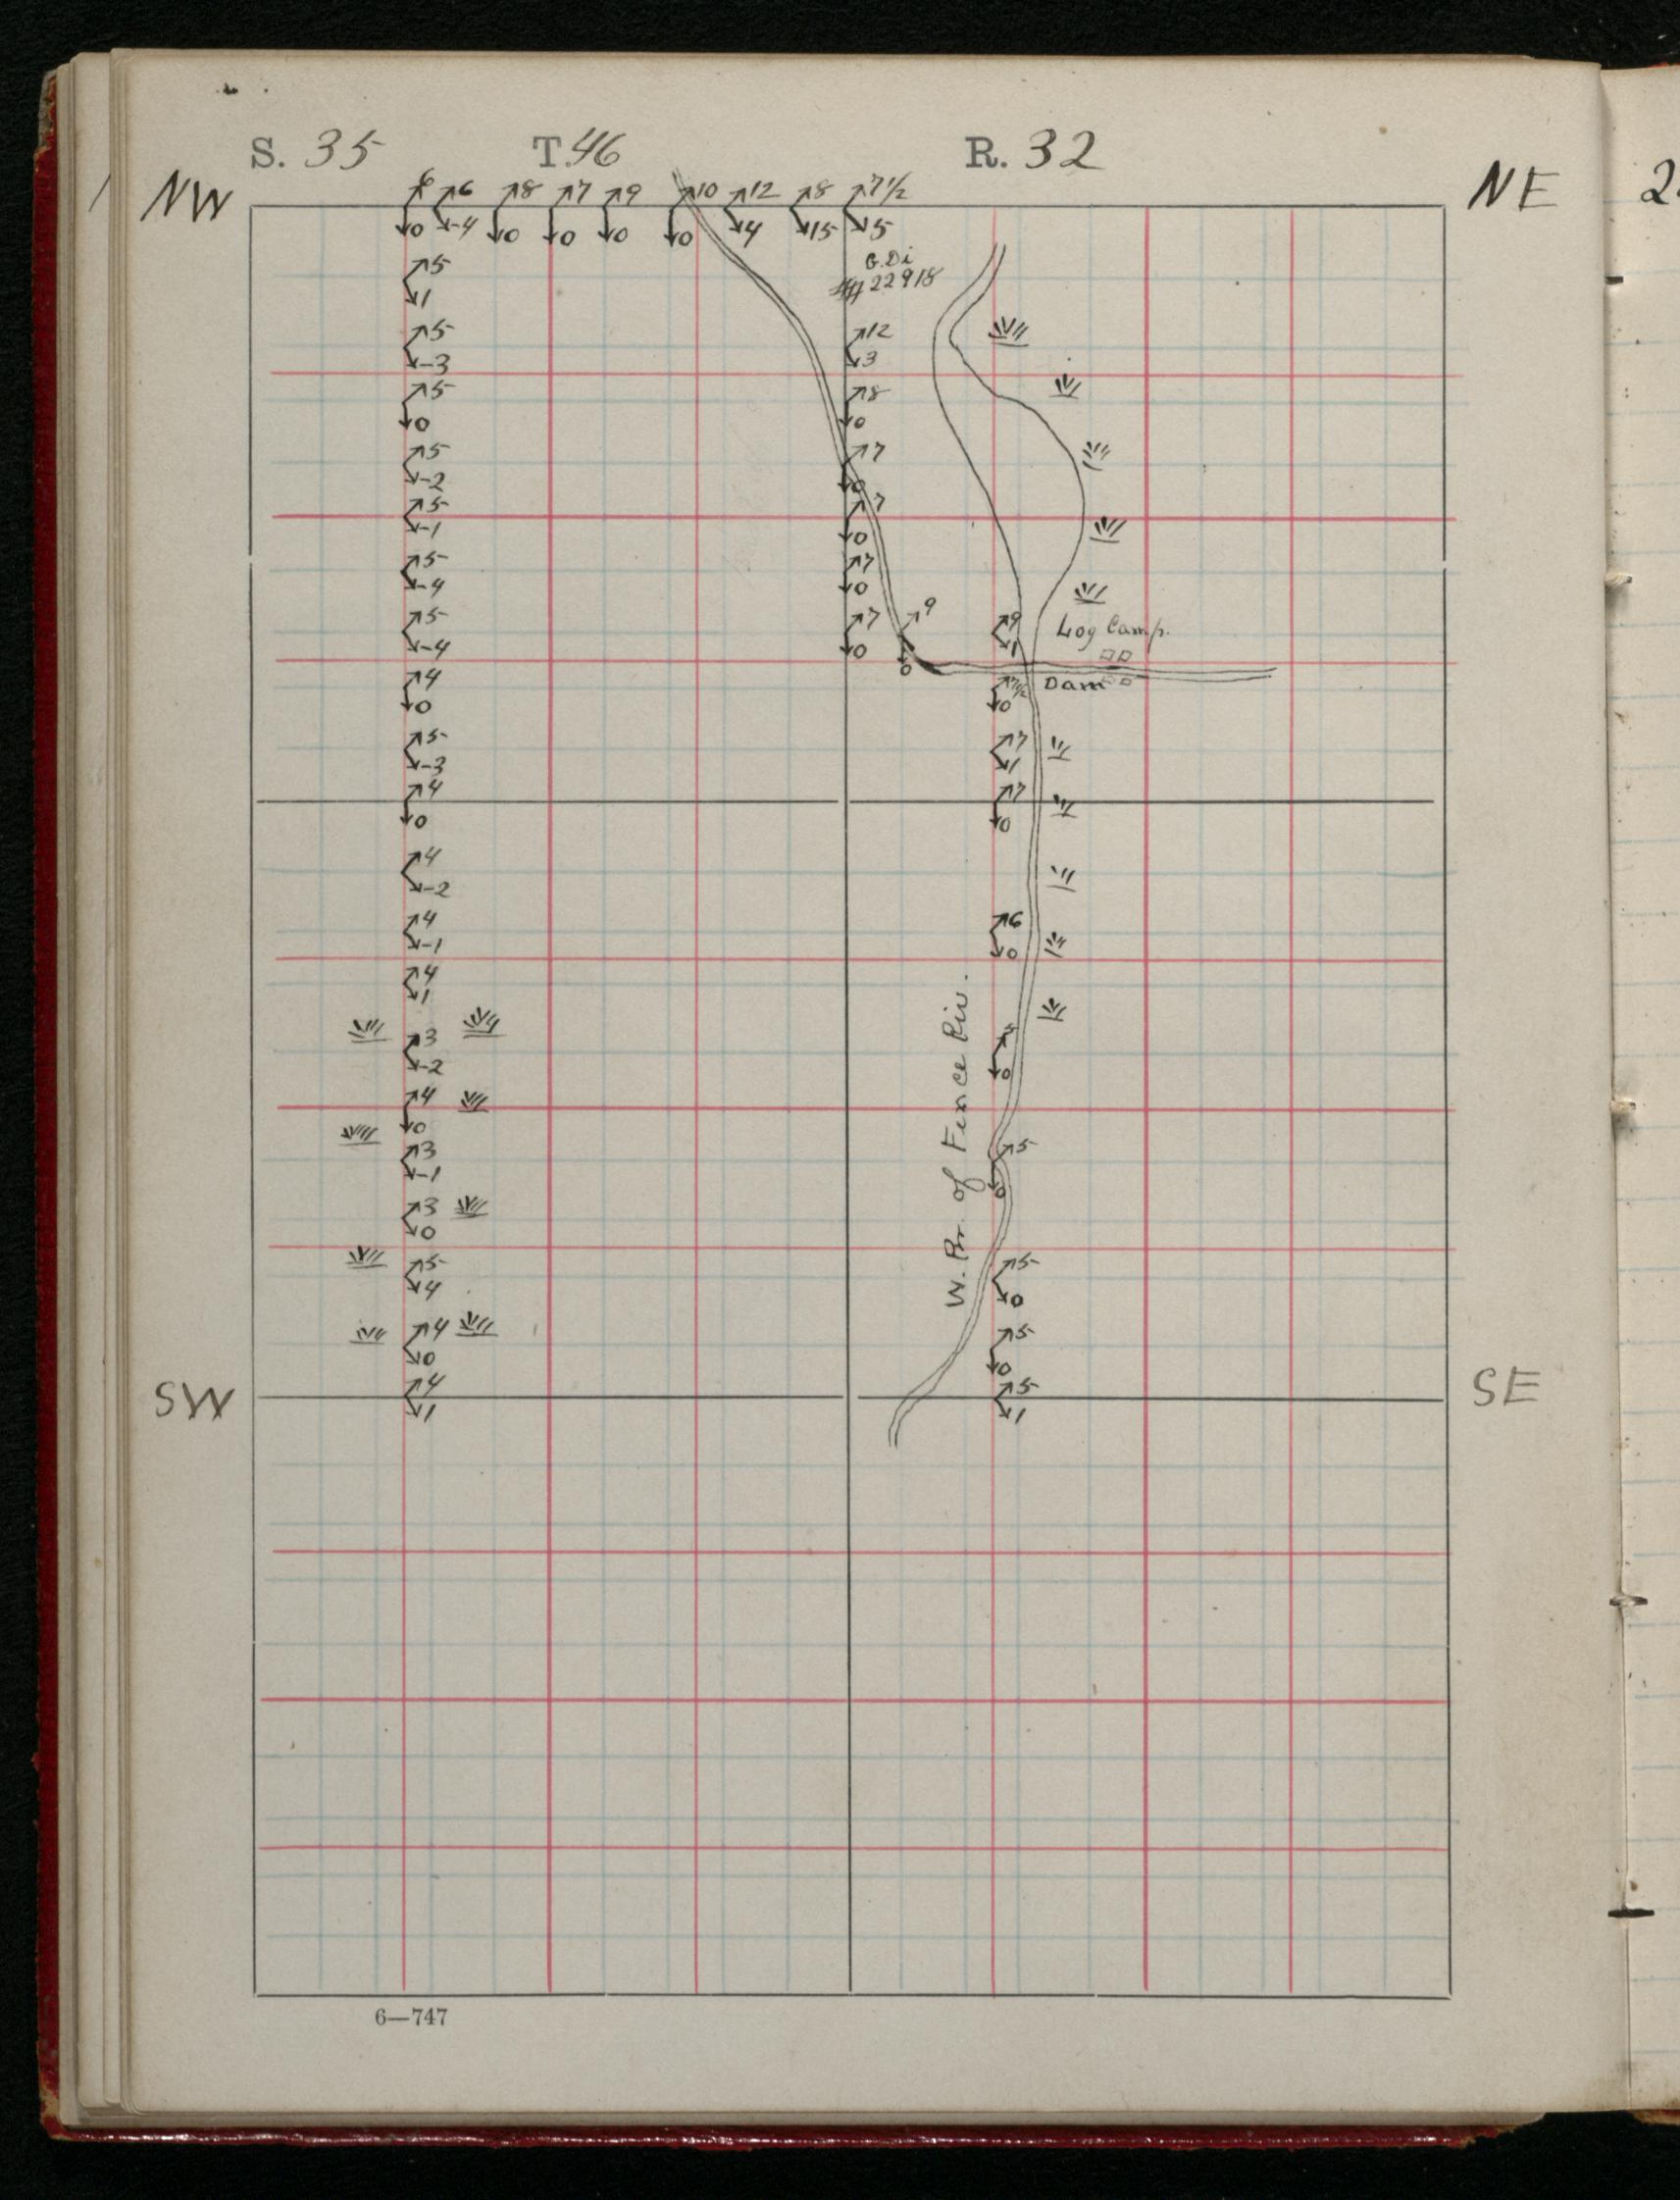 S. 35 T. 46 R. 32
NW NE
6 8 7 9 10 12 8 7 1/2
0 -4 0 0 0 0 4 15 5
G.Di
22918
5
1
5 12
-3 3
5 8
0 0
5 7
-2 0
5 7
-1 0
5 7
-4 0
5 7 9 9 Log Camp.
-4 0 0 1
4 Dam
0 0
5 7
-3 1
4 7
0 0
4
-2
4 6
-1 0
4
1
3 5
-2 0
4
0
3 5
-1 0
3
0
5 5
4 0
4 5
0 0
W. Br. of Fence Riv.
SW SE
4 5
1 1
6—747